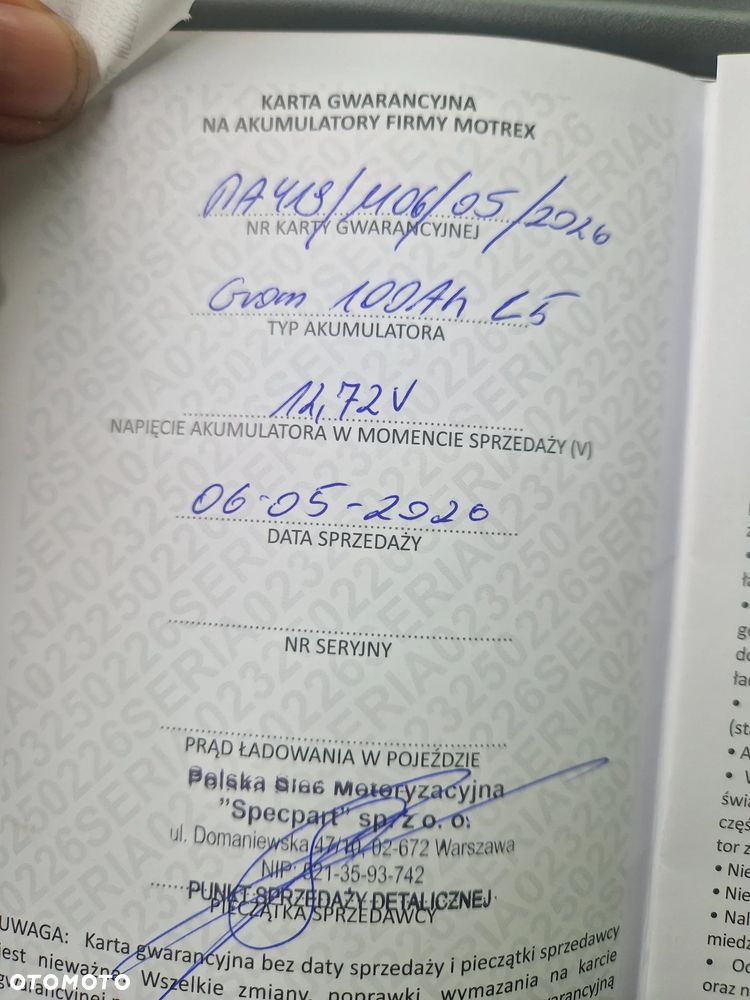 KARTA GWARANCYJNA
NA AKUMULATORY FIRMY MOTREX
MA419/1106/05/2026
NR KARTY GWARANCYJNEJ
Grom 100Ah L5
TYP AKUMULATORA
12,72V
NAPIĘCIE AKUMULATORA W MOMENCIE SPRZEDAŻY (V)
06-05-2026
DATA SPRZEDAŻY
NR SERYJNY
PRĄD ŁADOWANIA W POJEŹDZIE
Polska Sieć Motoryzacyjna
"Specpart" sp. z o. o.
ul. Domaniewska 47/10, 02-672 Warszawa
NIP: 521-35-93-742
PUNKT SPRZEDAŻY DETALICZNEJ
PIECZĄTKA SPRZEDAWCY
UWAGA: Karta gwarancyjna bez daty sprzedaży i pieczątki sprzedawcy
jest nieważna. Wszelkie zmiany, poprawki, wymazania na karcie
gwarancyjnej
OTOMOTO